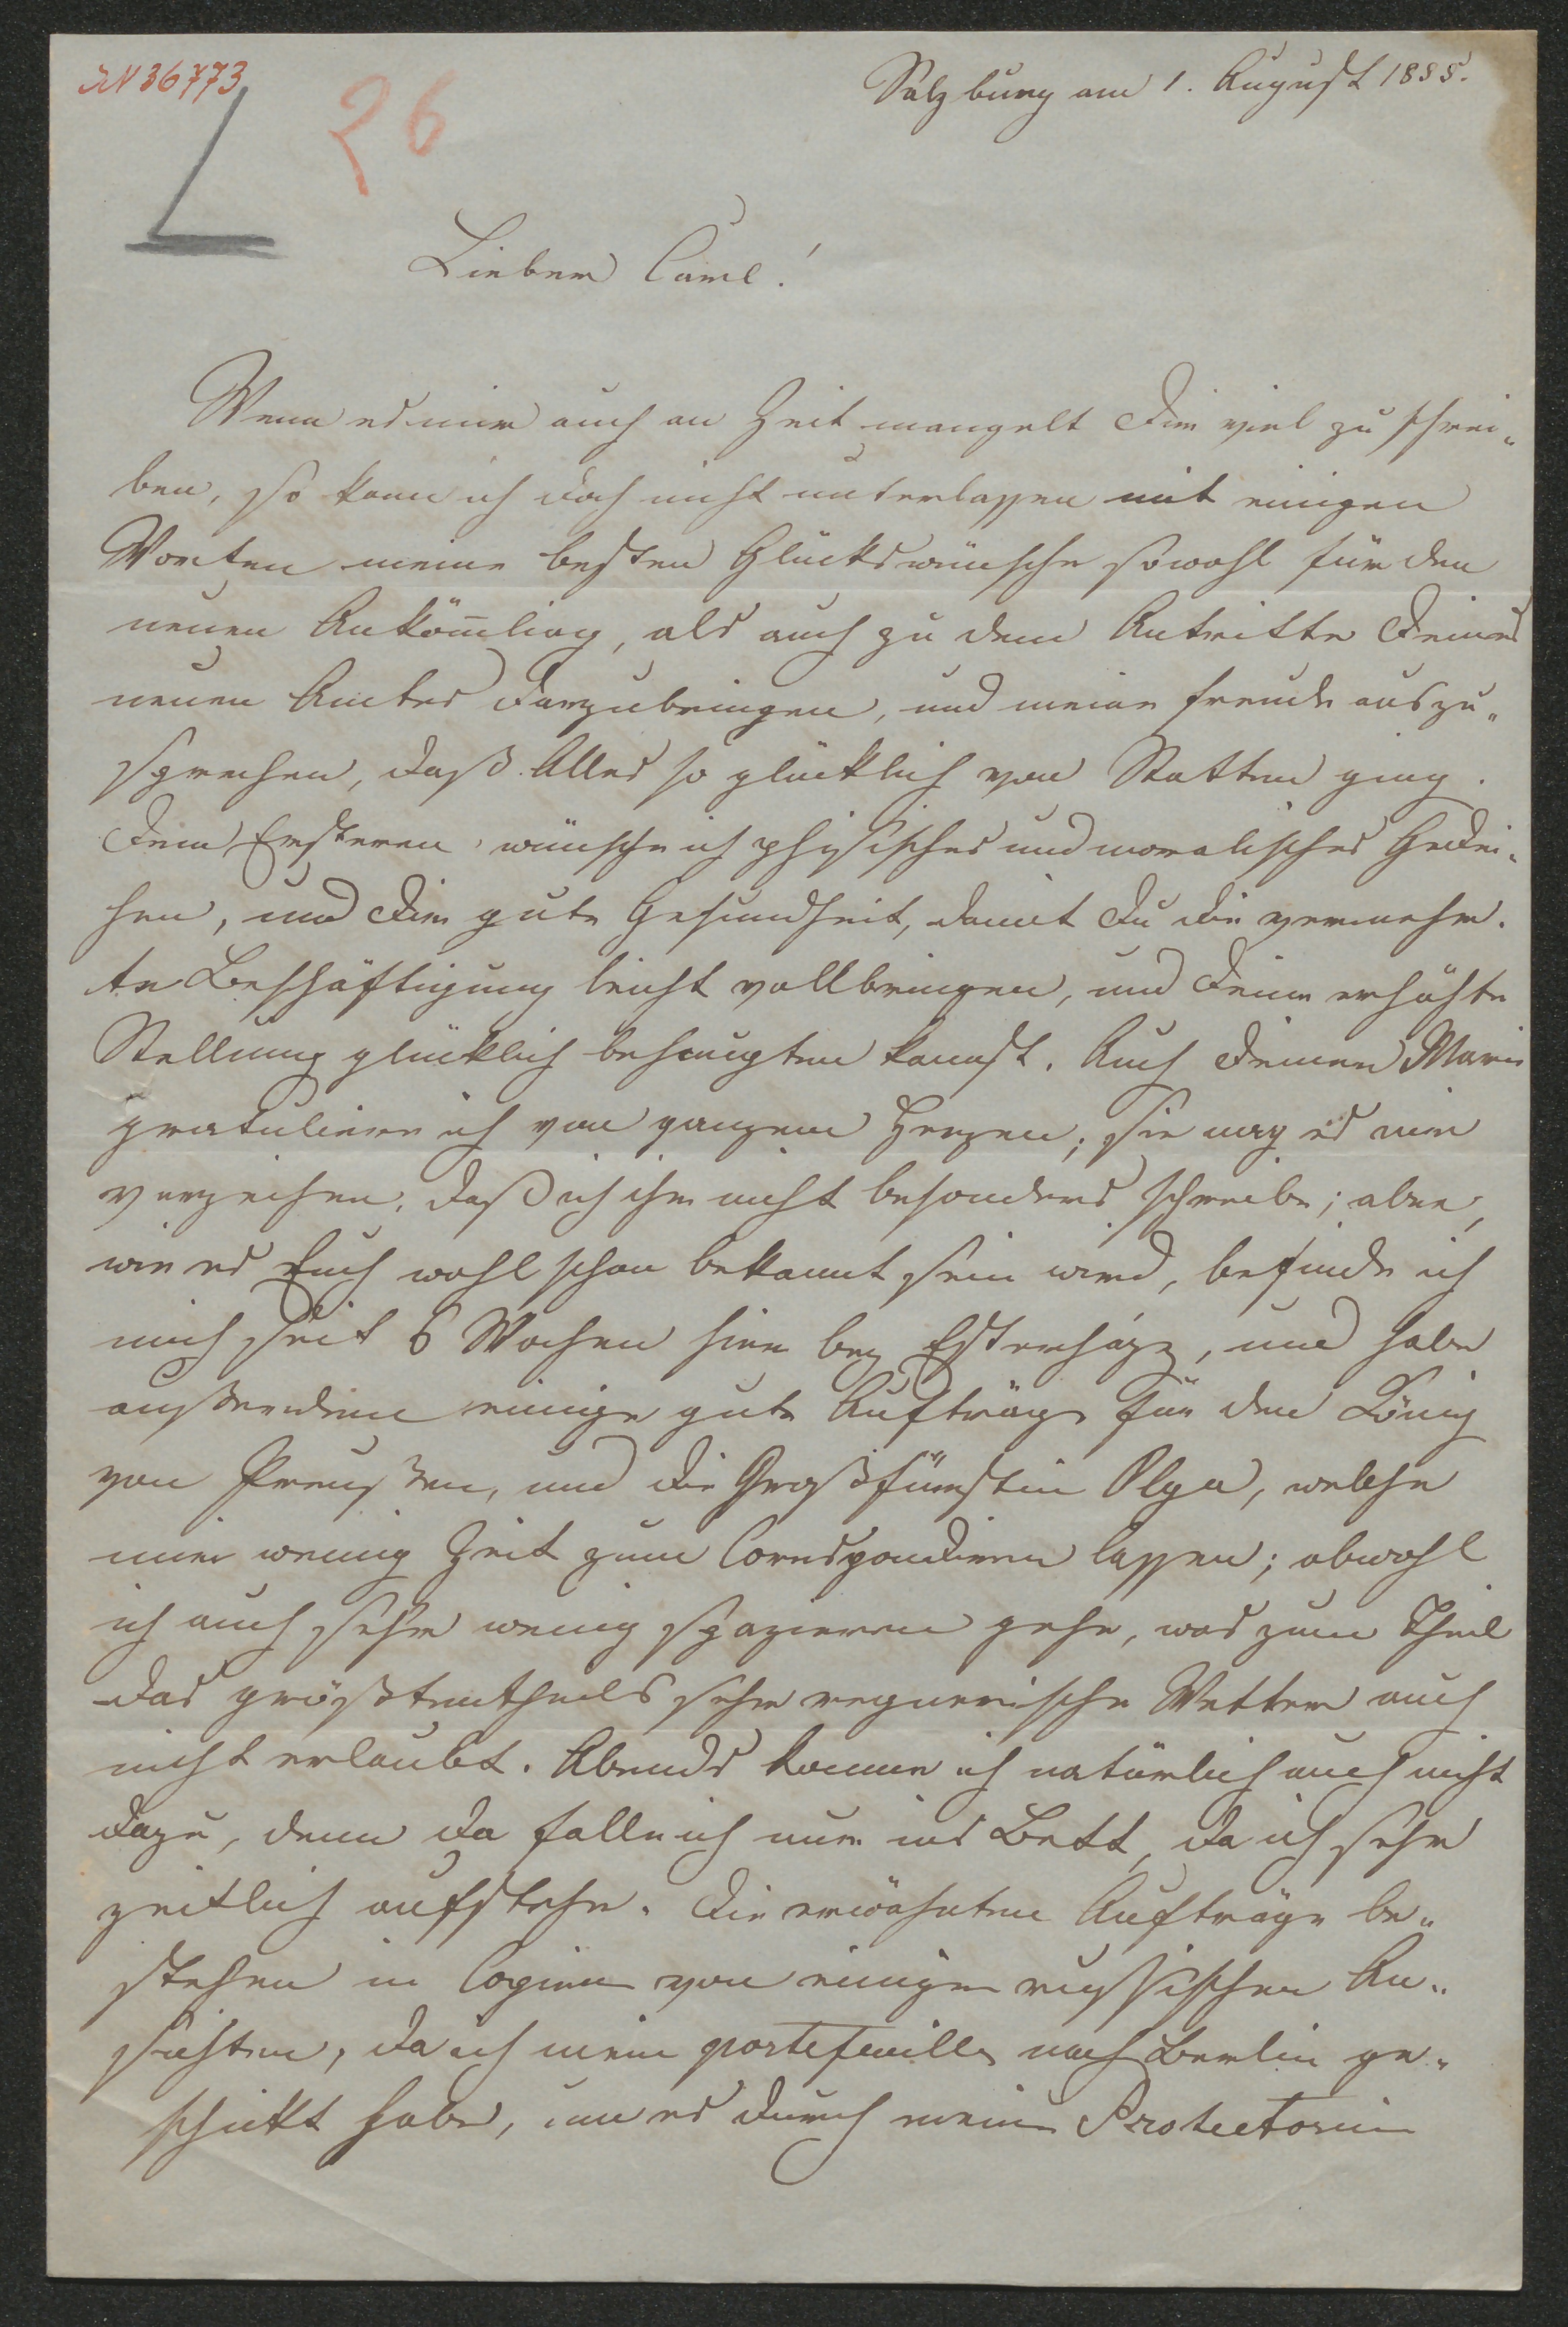 IN 36773
26
Salzburg am 1. August 1855.
Lieber Carl!
Wenn es mir auch an Zeit mangelt Dir viel zu schrei„
ben, so kann ich doch nicht unterlassen mit einigen
Worten meine besten Glückswünsche sowohl für den
neuen Ankom̅ling, als auch zu dem Antritte Deines
neuen Amtes darzubringen, und meine Freude auszu„
sprechen, daß Alles so glücklich von Statten ging.
Dem Ersteren wünsche ich phisisches und moralisches Gedei„
hen, und Dir gute Gesundheit, damit Du die vermehr„
te Beschäftigung leicht vollbringen, und Deine erhöhte
Stellung glücklich behaupten kannst. Auch Deiner Marie
gratuliere ich von ganzem Herzen; sie mag es mir
verzeihen, daß ich ihr nicht besonders schreibe; aber,
wie es Euch wohl schon bekannt sein wird, befinde ich
mich seit 6 Wochen hier bey Esterházy, und habe
außerdem einige gute Aufträge für den König
von Preußen, und die Großfürstin Olga, welche
mir wenig Zeit zum Correspondiren lassen; obwohl
ich auch sehr wenig spazieren gehe, was zum Theil
das größtentheils sehr regnerische Wetter auch
nicht erlaubt. Abends komme ich natürlich auch nicht
dazu, denn da falle ich nur ins Bett, da ich sehr
zeitlich aufstehe. Die erwähnten Aufträge be„
stehen in Copien von einigen russischen An„
sichten, da ich mein portefeuille nach Berlin ge„
schickt habe, um es durch meine Protectorin